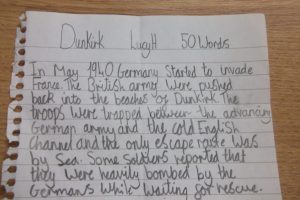 Dunkirk LucyH 50 Words
In May 1940 Germany Started to invade
France. The British army were pushed
back into the beaches of Dunkirk. The
troops were trapped between the advancing
German army and the cold English
Channel and the only escape route was
by Sea. Some Soldiers reported that
they were heavily bombed by the
Germans while waiting for rescue.